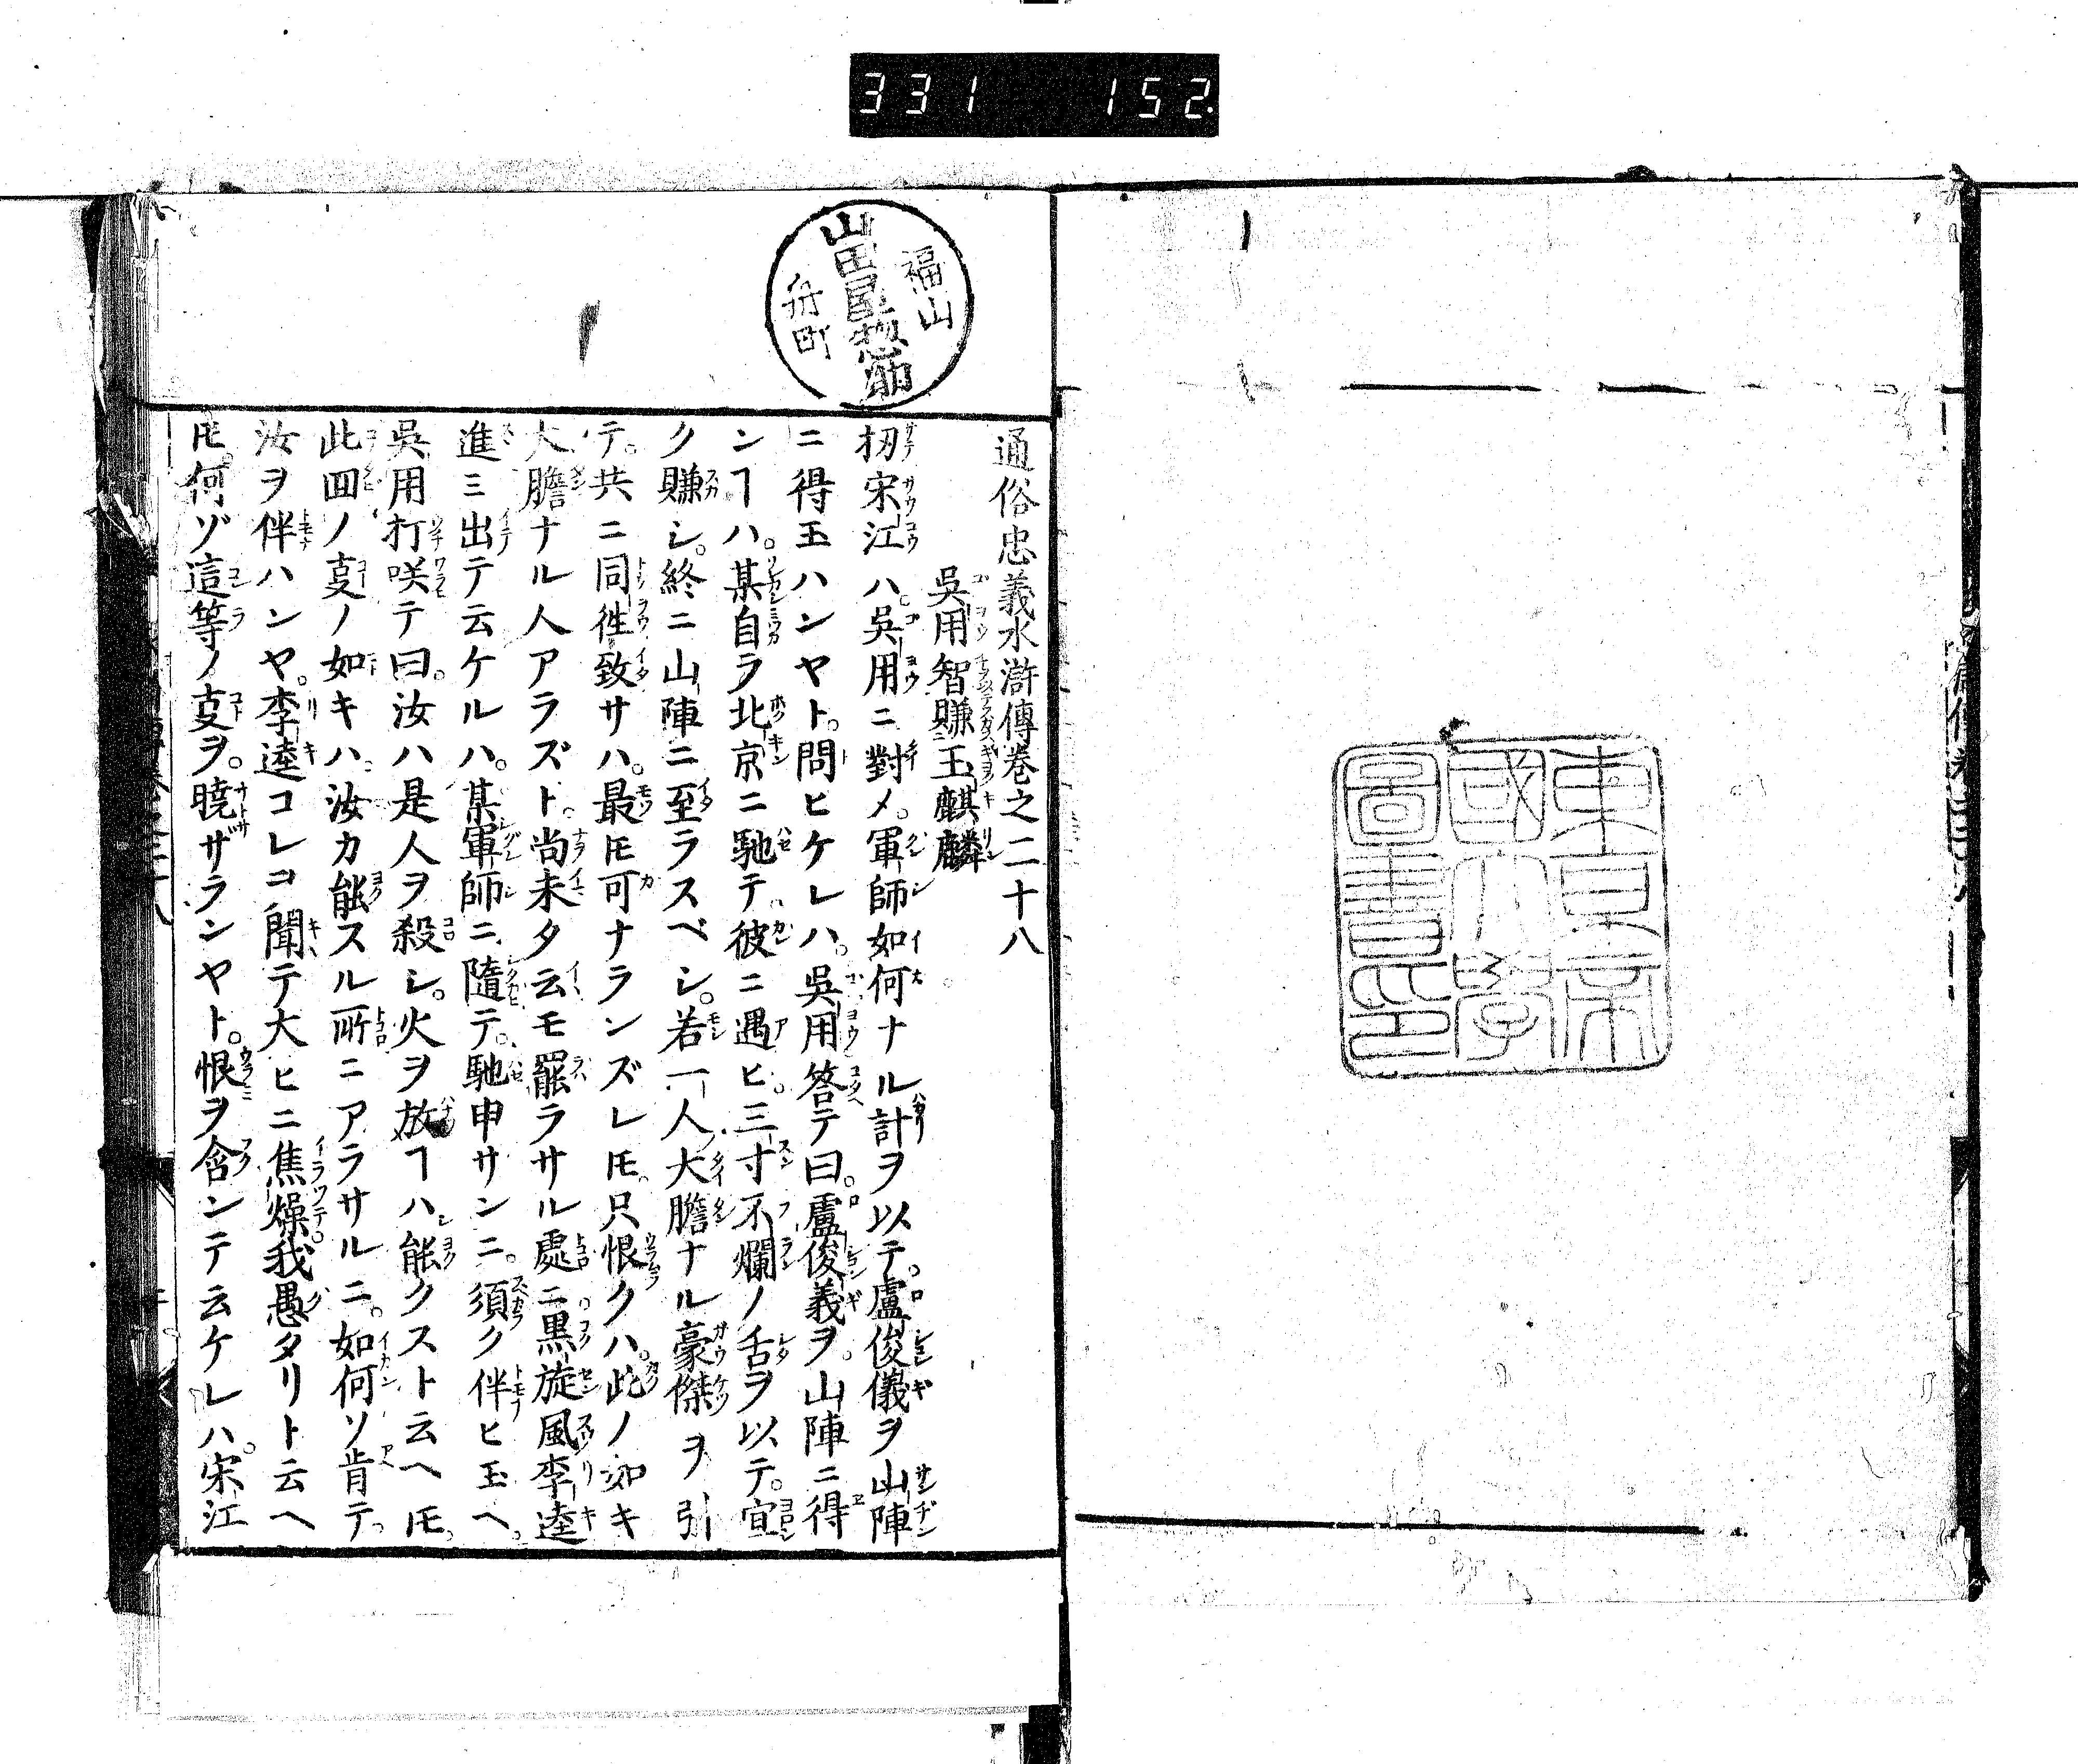 331 152
東京帝
國大學
圖書印
福山
山田屋惣
舟町
通俗忠義水滸傳卷之二十八
吳用智賺玉麒麟
扨宋江ハ。吳用ニ對メ。軍師如何ナル計ヲ以テ。盧俊儀ヲ山陣
ニ得玉ハンヤト。問ヒケレハ。吳用答テ曰。盧俊義ヲ。山陣ニ得
ンヿハ。某自ラ北京ニ馳テ。彼ニ遇ヒ。三寸不爛ノ舌ヲ以テ。宜
ク賺シ。終ニ山陣ニ至ラスベシ。若一人大膽ナル豪傑ヲ引
テ。共ニ同徃致サハ。最𪜈可ナランズレ𪜈。只恨クハ。此ノ如キ
大膽ナル人アラズト。尚未タ云モ罷ラサル處ニ黒旋風李逵
進ミ出テ云ケルハ。某軍師ニ隨テ。馳申サンニ。須ク伴ヒ玉ヘ。
吳用打咲テ曰。汝ハ是人ヲ殺シ。火ヲ放ヿハ能クスト云ヘ𪜈。
此回ノ㕝ノ如キハ汝カ能スル所ニアラサルニ。如何ソ肯テ。
汝ヲ伴ハンヤ。李逵コレヲ聞テ大ヒニ焦燥。我愚タリト云ヘ
𪜈。何ゾ這等ノ㕝ヲ。曉ザランヤト。恨ヲ含ンテ云ケレハ。宋江